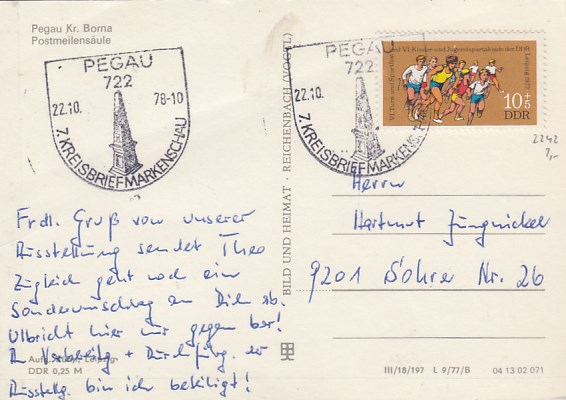 Pegau Kr. Borna
Postmeilensäule
PEGAU
722
22.10. 78-10
7. KREISBRIEFMARKENSCHAU
PEGAU
722
22.10.
7. KREISBRIEFMARKENS
VI. Turn- und Sportfest und VI. Kinder- und Jugendspartakiade der DDR Leipzig 1977
10+5
DDR
2242
Herrn
Hartmut Jüngnickel
9201 Nr. 26
Frdl. Gruß von unserer
Ausstellung sendet Theo
Zugleich geht noch ein
Sonderumschlag an Dich ab.
Ulbricht hier nur gegen bar!
Vorbereitg + Durchführg. der
Ausstellg. bin ich beteiligt!
DDR 0,25 M
BILD UND HEIMAT · REICHENBACH (VOGTL)
III/18/197 L 9/77/B 04 13 02 071